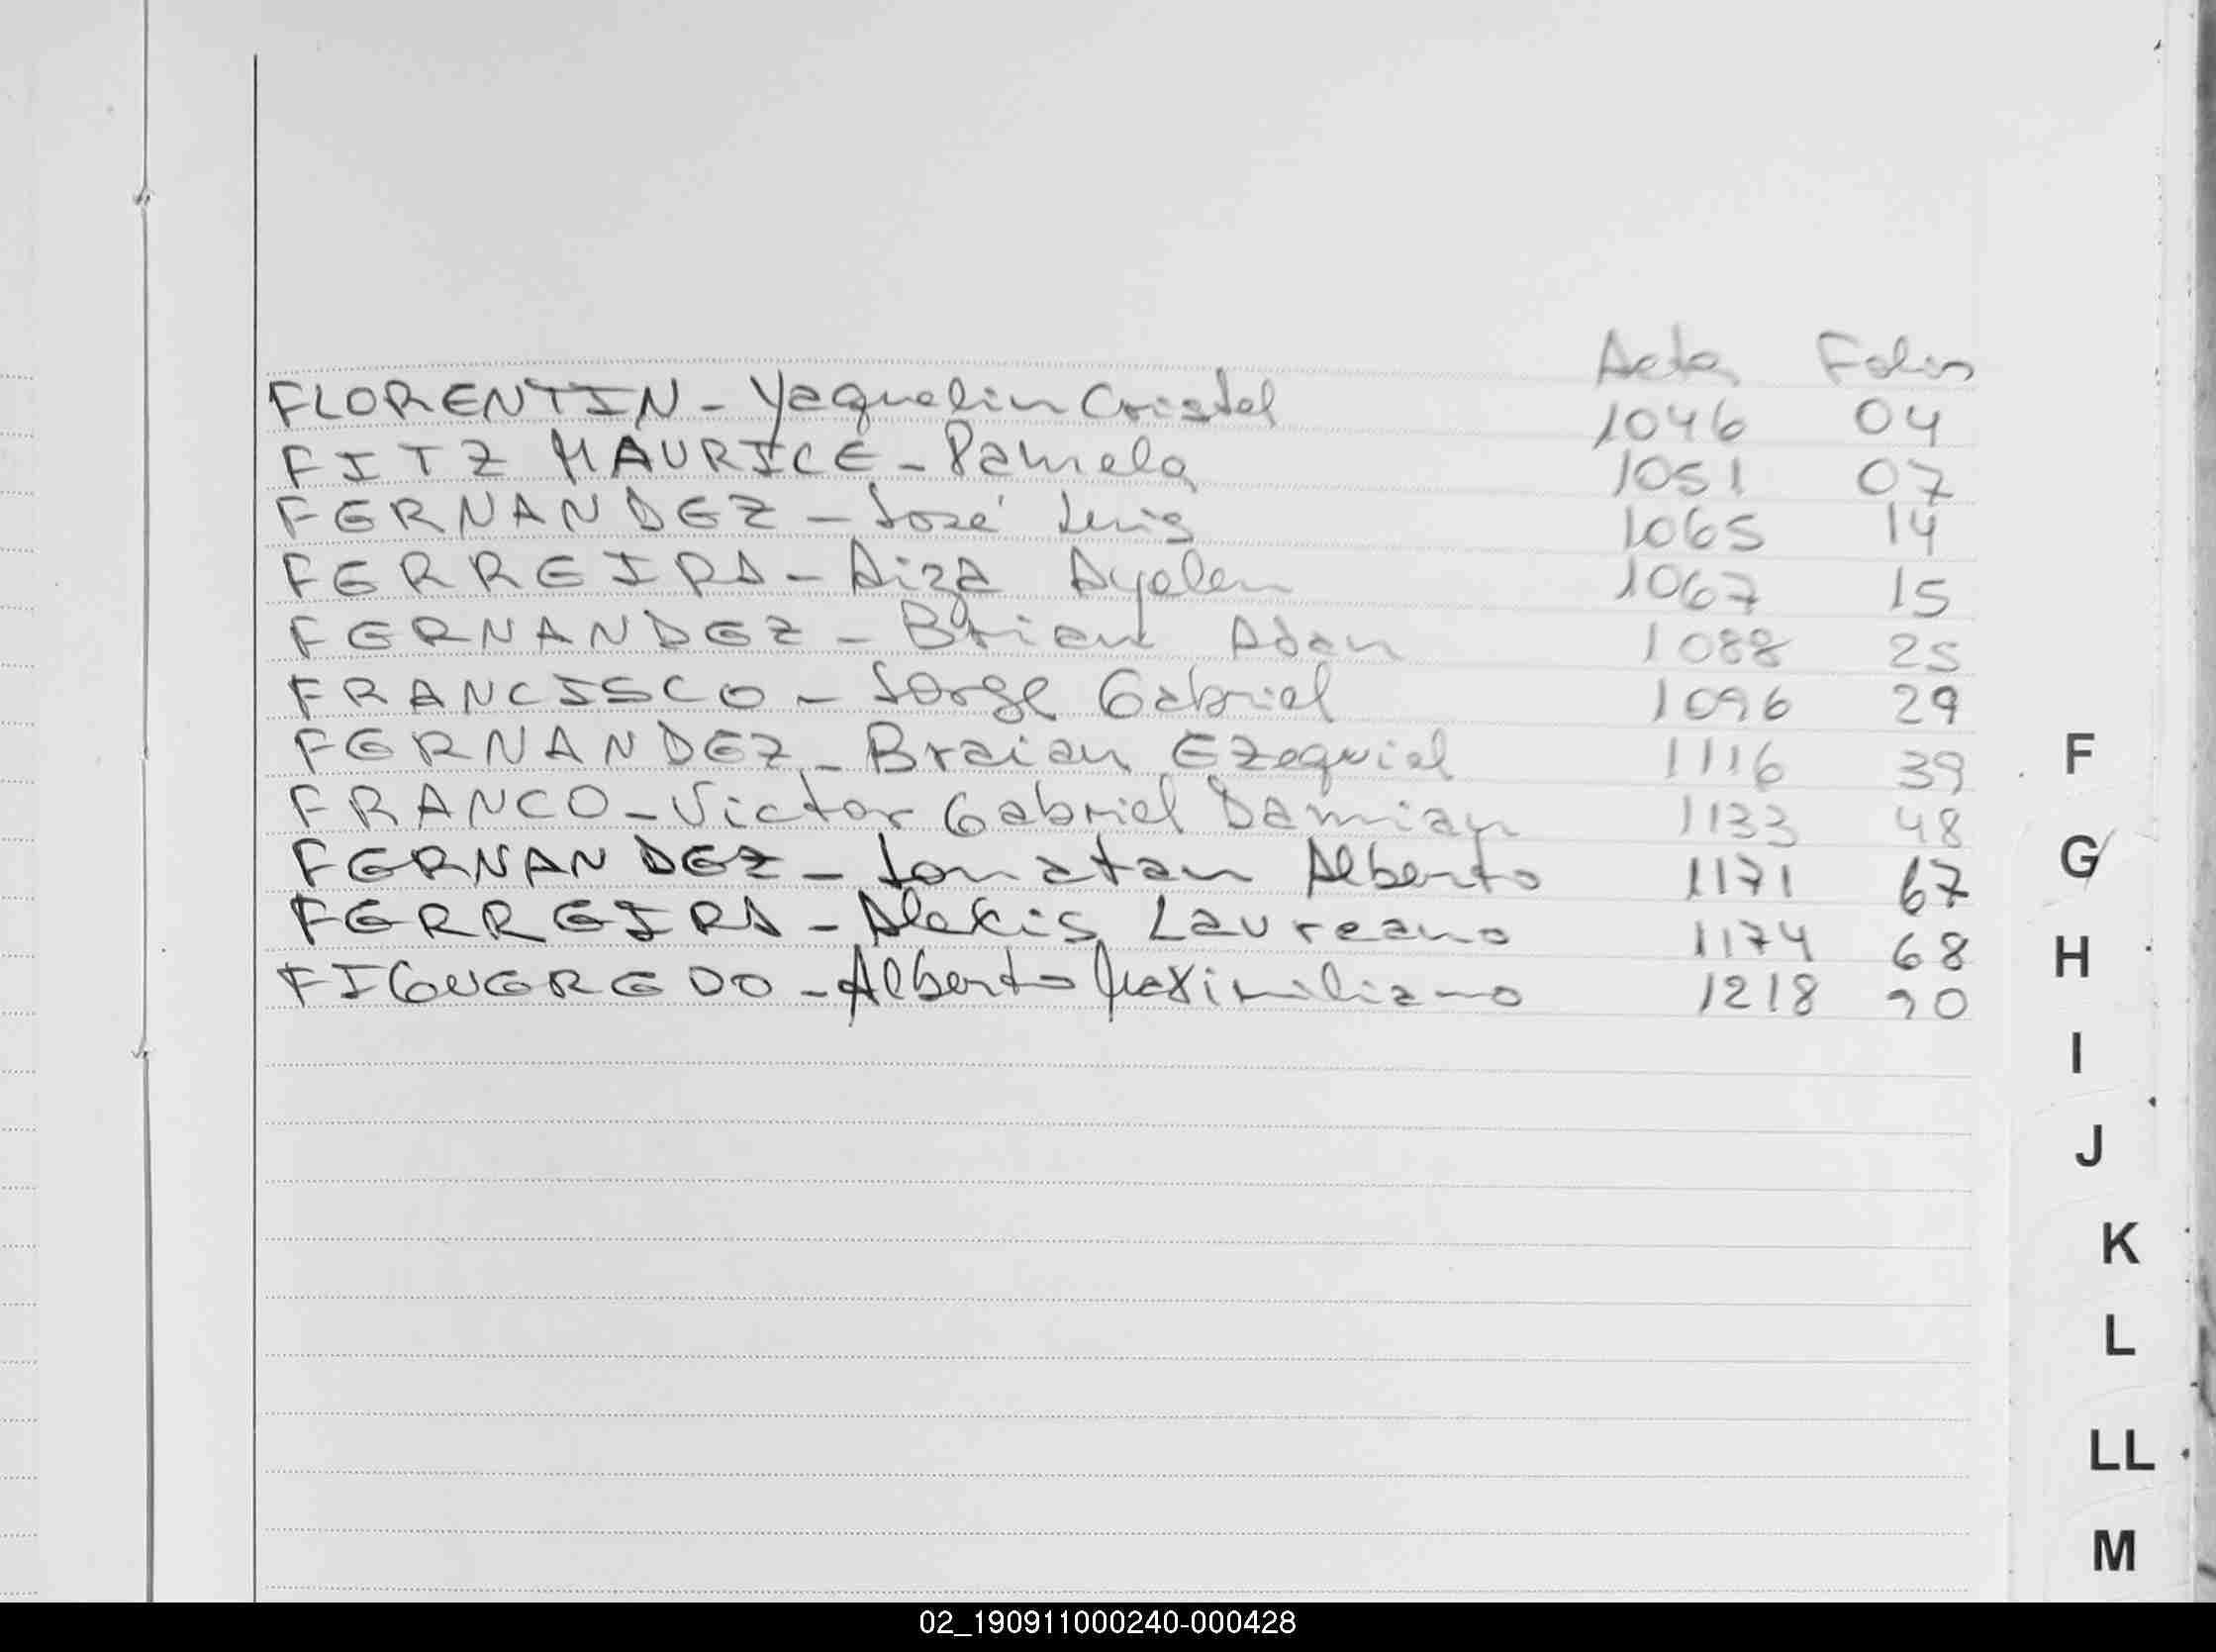 Acta Folio
FLORENTIN - Yaquelin Cristel 1046 04
FITZ MAURICE - Pamela 1051 07
FERNANDEZ - José Luis 1065 14
FERREIRA - Aiza Ayelen 1067 15
FERNANDEZ - Brian Adan 1088 25
FRANCISCO - Jorge Gabriel 1096 29
FERNANDEZ - Braian Ezequiel 1116 39
FRANCO - Victor Gabriel Damian 1133 48
FERNANDEZ - Jonatan Alberto 1171 67
FERREIRA - Alexis Laureano 1174 68
FIGUEREDO - Alberto Maximiliano 1218 90
F
G
H
I
J
K
L
LL
M
02_190911000240-000428